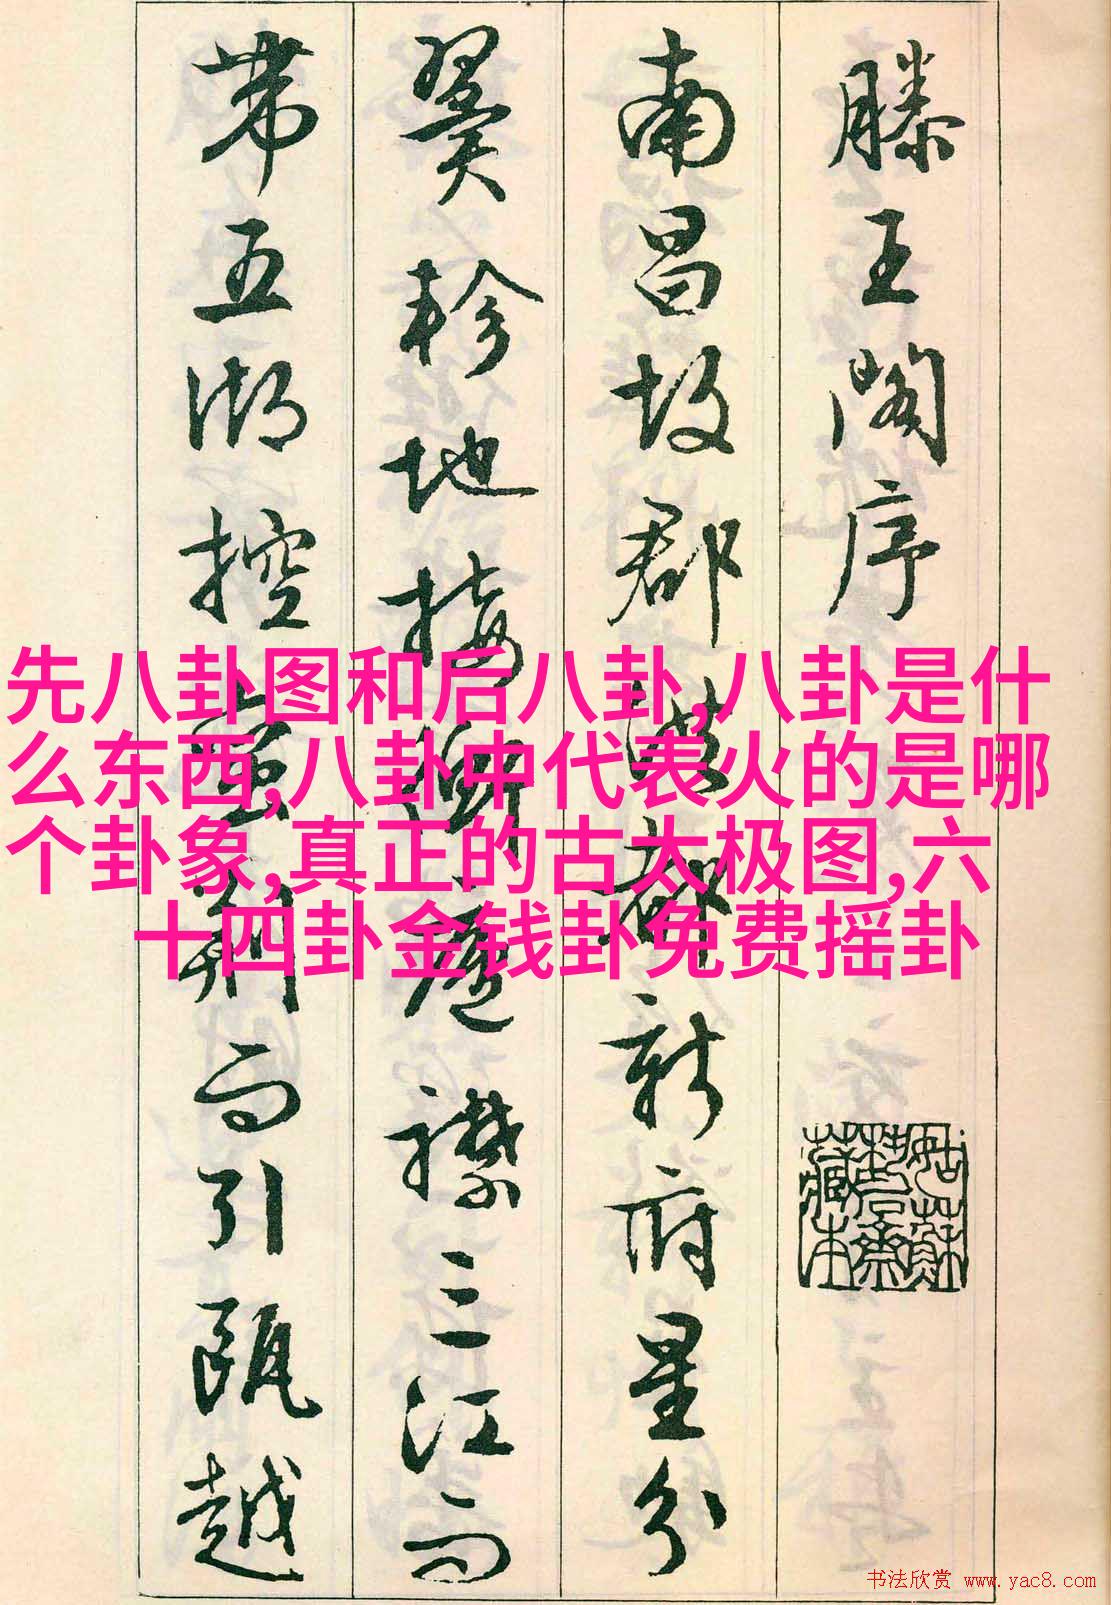 滕王阁序
南昌故郡洪都新府星分
翼轸地接衡庐襟三江而
带五湖控蛮荆而引瓯越
先八卦图和后八卦,八卦是什
么东西,八卦中代表火的是哪
个卦象,真正的古太极图,六
十四卦金钱卦免费摇卦
书法欣赏 www.yac8.com